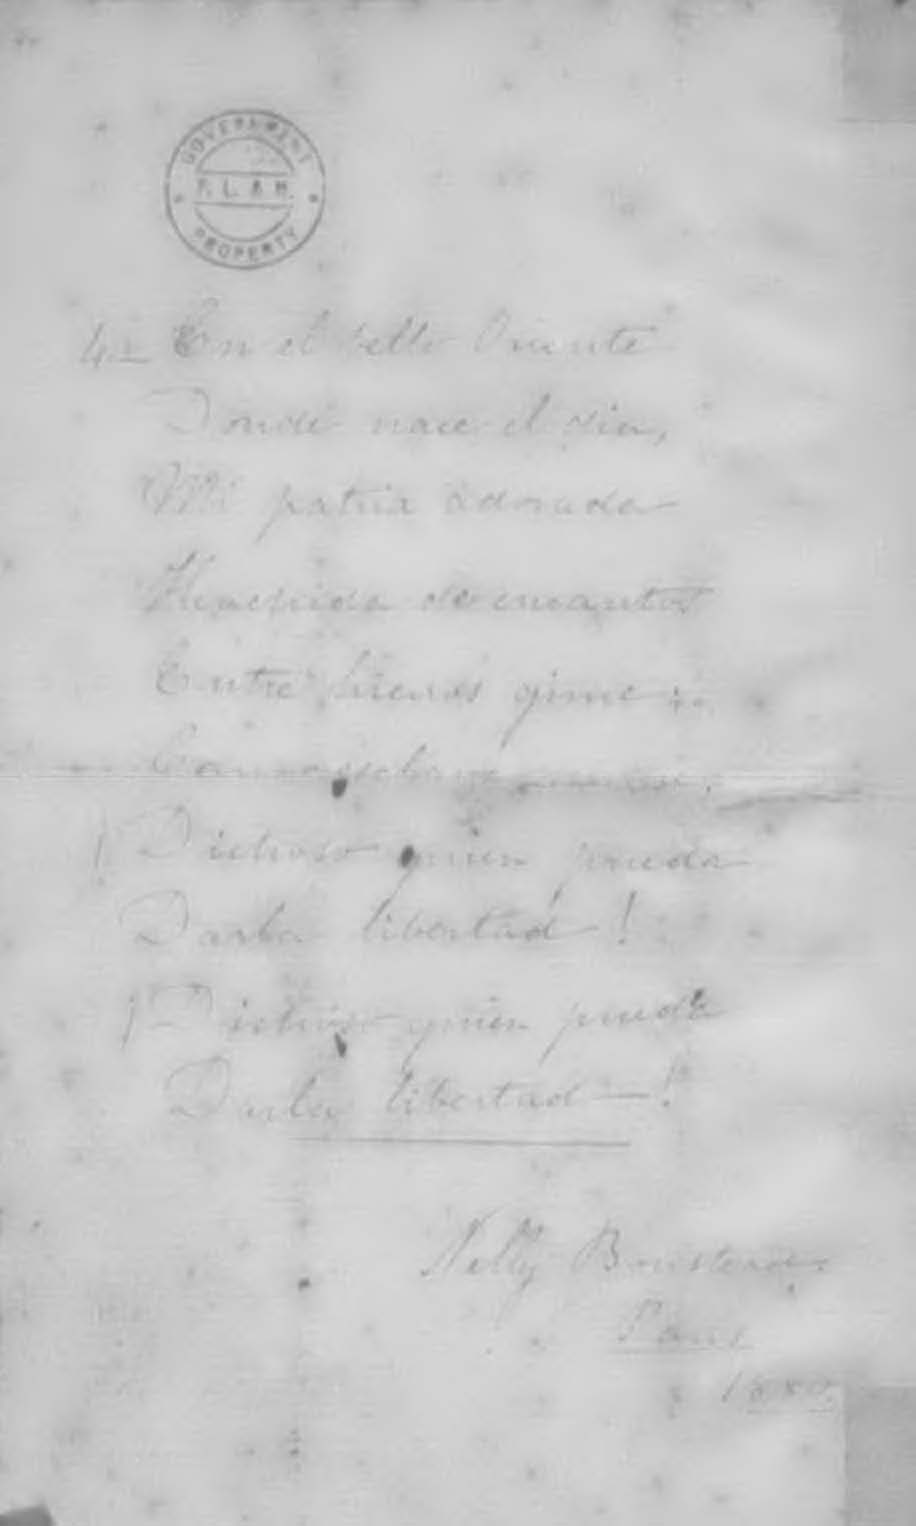 GOVERNMENT
P. L. & M.
PROPERTY
4= En el bello Oriente
Donde nace el dia,
Mi patria adorada
Henchida de encantos
Entre hierros gime
¡ Dichoso quien pueda
Darla libertad !
¡ Dichoso quien pueda
Darla libertad — !
Nelly Boustead
Paris